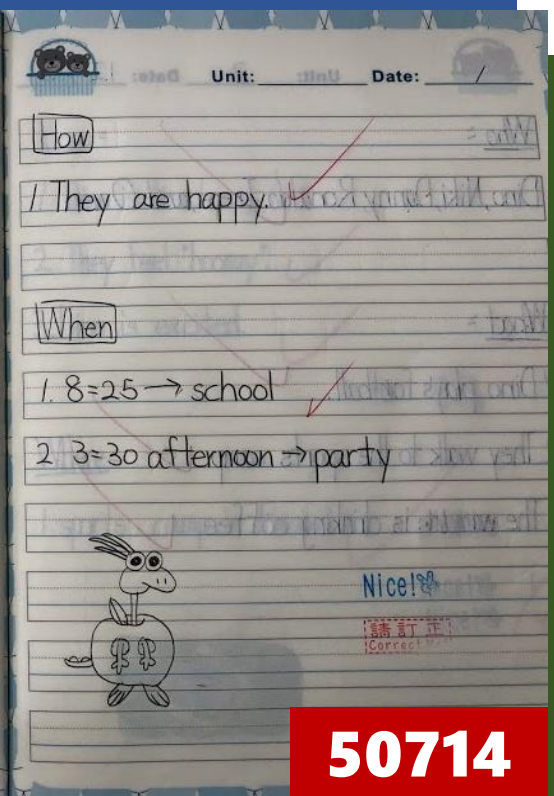 Unit: Date: /
How
1. They are happy.
When
1. 8=25→ school
2 3=30 afternoon → party
Nice!
請訂正
Correct
50714